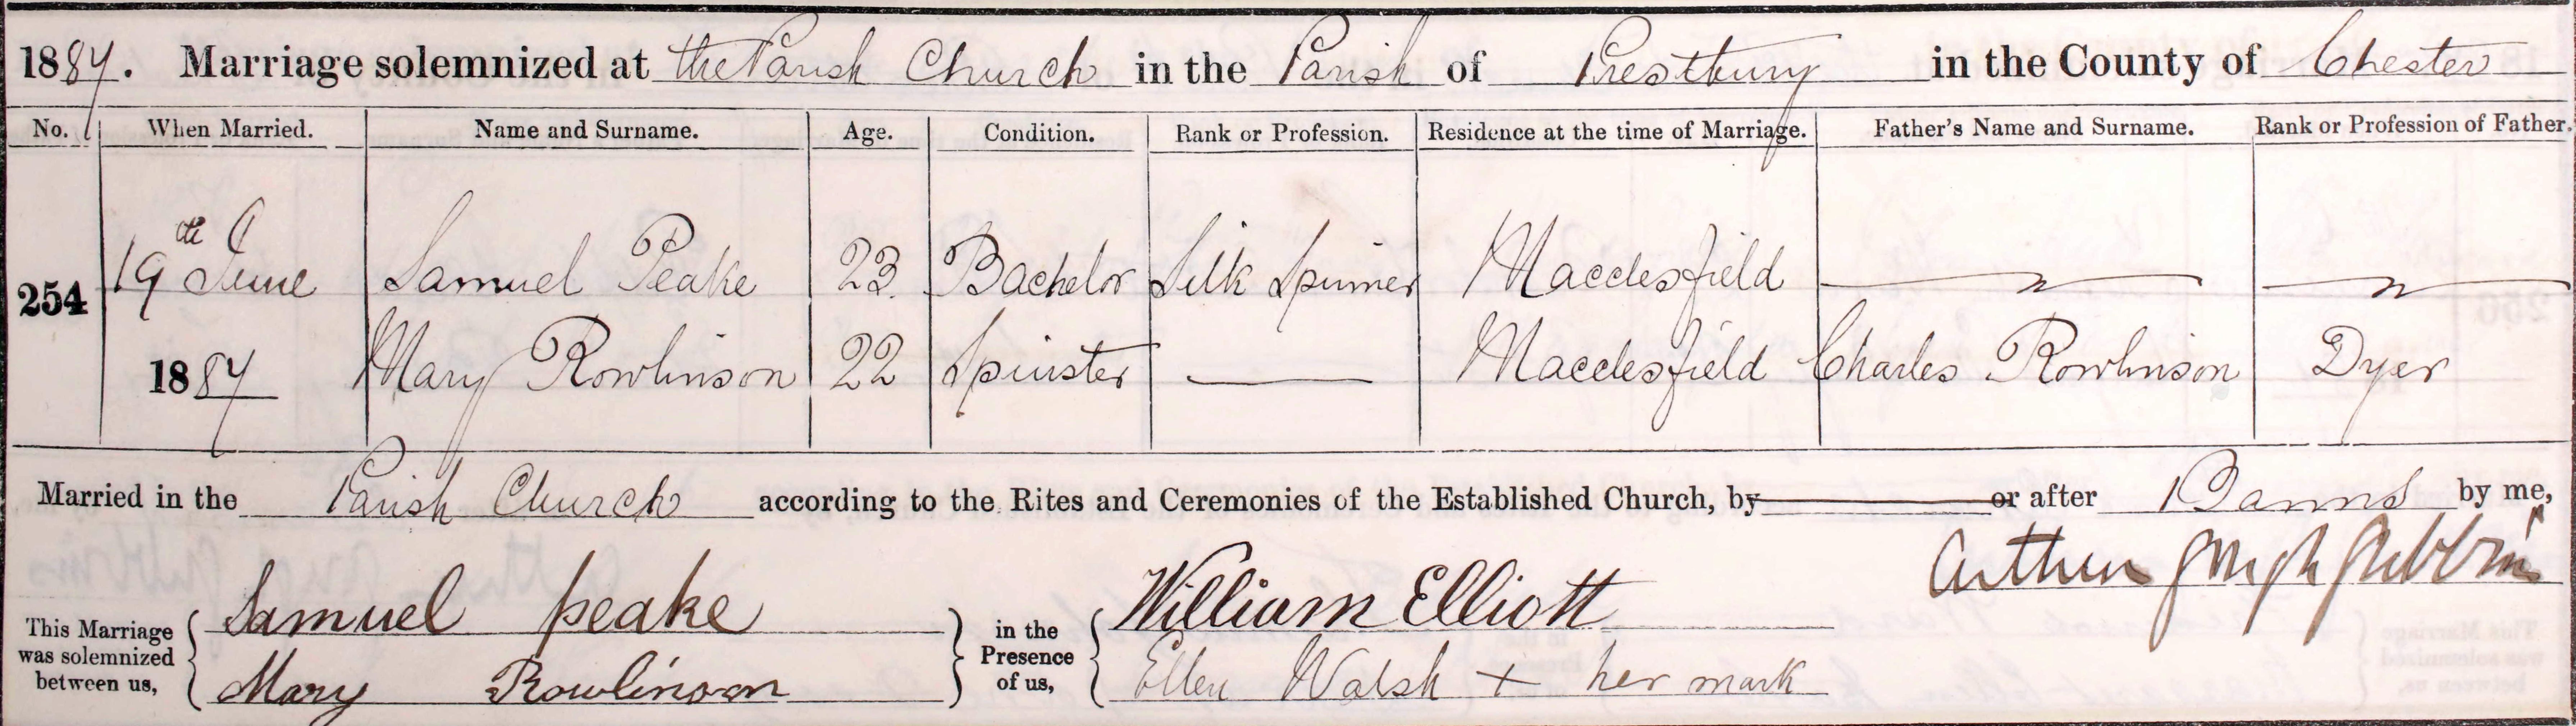 1887. Marriage solemnized at the Parish Church in the Parish of Prestbury in the County of Chester
No. When Married. Name and Surname. Age. Condition. Rank or Profession. Residence at the time of Marriage. Father's Name and Surname. Rank or Profession of Father.
254 19th June Samuel Peake 23 Bachelor Silk Spinner Macclesfield
1887 Mary Rowlinson 22 Spinster — Macclesfield Charles Rowlinson Dyer
Married in the Parish Church according to the Rites and Ceremonies of the Established Church, by or after Banns by me,
Arthur Gough Gibbins
This Marriage was solemnized between us, Samuel peake in the Presence of us, William Elliott
Mary Rowlinson Ellen Walsh + her mark